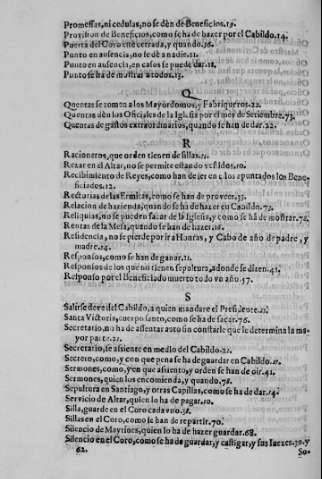 Promessas, ni cedulas, no se dèn de Beneficios.13.
Provision de Beneficios, como se ha de hazer por el Cabildo.14.
Puerta del Coro estè cerrada, y quando.36.
Punto en ausencia, no se dè a nadie.11.
Punto en ausencia, en casos se puede dar.11.
Punto se ha de mostrar a todos.13.
Q
Quentas se toman a los Mayordomos, y Fabriqueros.22.
Quentas dèn los Oficiales de la Iglesia por el mes de Setiembre.73.
Quentas de gastos extraordinarios, quando se han de dar.22.
R
Racioneros, que orden tienen de sillas.
Rezar en el Altar, no se permite estando vestidos.10.
Recibimiento de Reyes, como han de ser en los apuntados los Bene-
ficiados.12.
Rectorias de las Ermitas, como se han de proveer.35.
Relacion de hazienda, quando se ha de hazer en Cabildo.73.
Reliquias, no se pueden sacar de la Iglesia, y como se ha de mostrar.72.
Rentas de la Mesa, quando se han de hazer.16.
Residencia, no se pierde por ir a Honras, y Cabo de año de padre, y
madre.14.
Responsos, como se han de ganar.
Responsos de los que no tienen sepultura, adonde se dizen.41.
Responso por el Beneficiado muerto todo vn año.57.
S
Salirse deve del Cabildo, a quien mandare el Presidente.
Santa Victoria, cuerpo santo, como se ha de sacar.76.
Secretario, no ha de assentar auto sin constarle que le determina la ma-
yor parte.21.
Secretario, se assiente en medio del Cabildo.22.
Secreto, como, y con que pena se ha de guardar en Cabildo.
Sermones, como, y con que assiento, y orden se han de oir.41.
Sermones, quien los encomienda, y quando.
Sepultura en Santiago, y otras Capillas, como se ha de dar.
Servicio de Altar, quien lo ha de pagar.10.
Silla, guarde en el Coro cada vno.
Sillas en el Coro, como se han de repartir.70.
Silencio de Maytines, quien lo ha de hazer guardar.68.
Silencio en el Coro, como se ha de guardar, y castigar, y sus Iuezes. y
62. So-